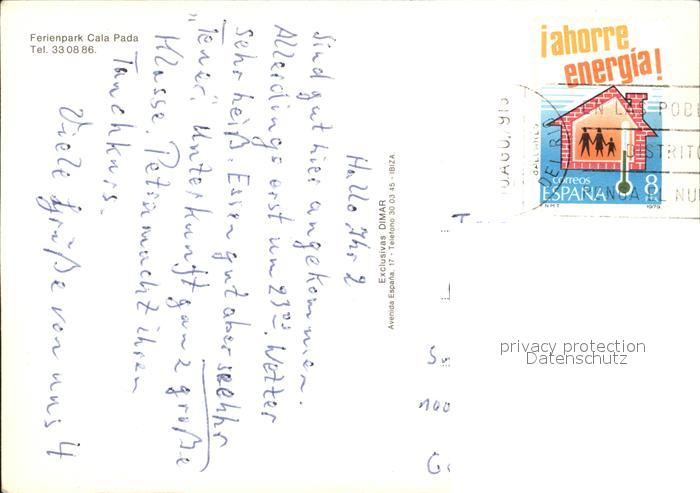 Ferienpark Cala Pada
Tel. 33 08 86.
Hallo Ihr 2
Sind gut hier angekommen.
Allerdings erst um 23⁰⁰. Wetter
sehr heiß. Essen gut aber seehr
"teuer". Unterkunft ganz große
Klasse. Petra macht ihren
Tauchkurs.
Viele Grüße von uns 4
Exclusivas DIMAR
Avenida España, 17 - Teléfono 30 03 45 - IBIZA
¡ahorre
energía!
correos
ESPAÑA 8
F.N.M.T. 1979
AGO. 79
BALEARES
DEL RIO
DISTRITO
AL
privacy protection
Datenschutz
T
100